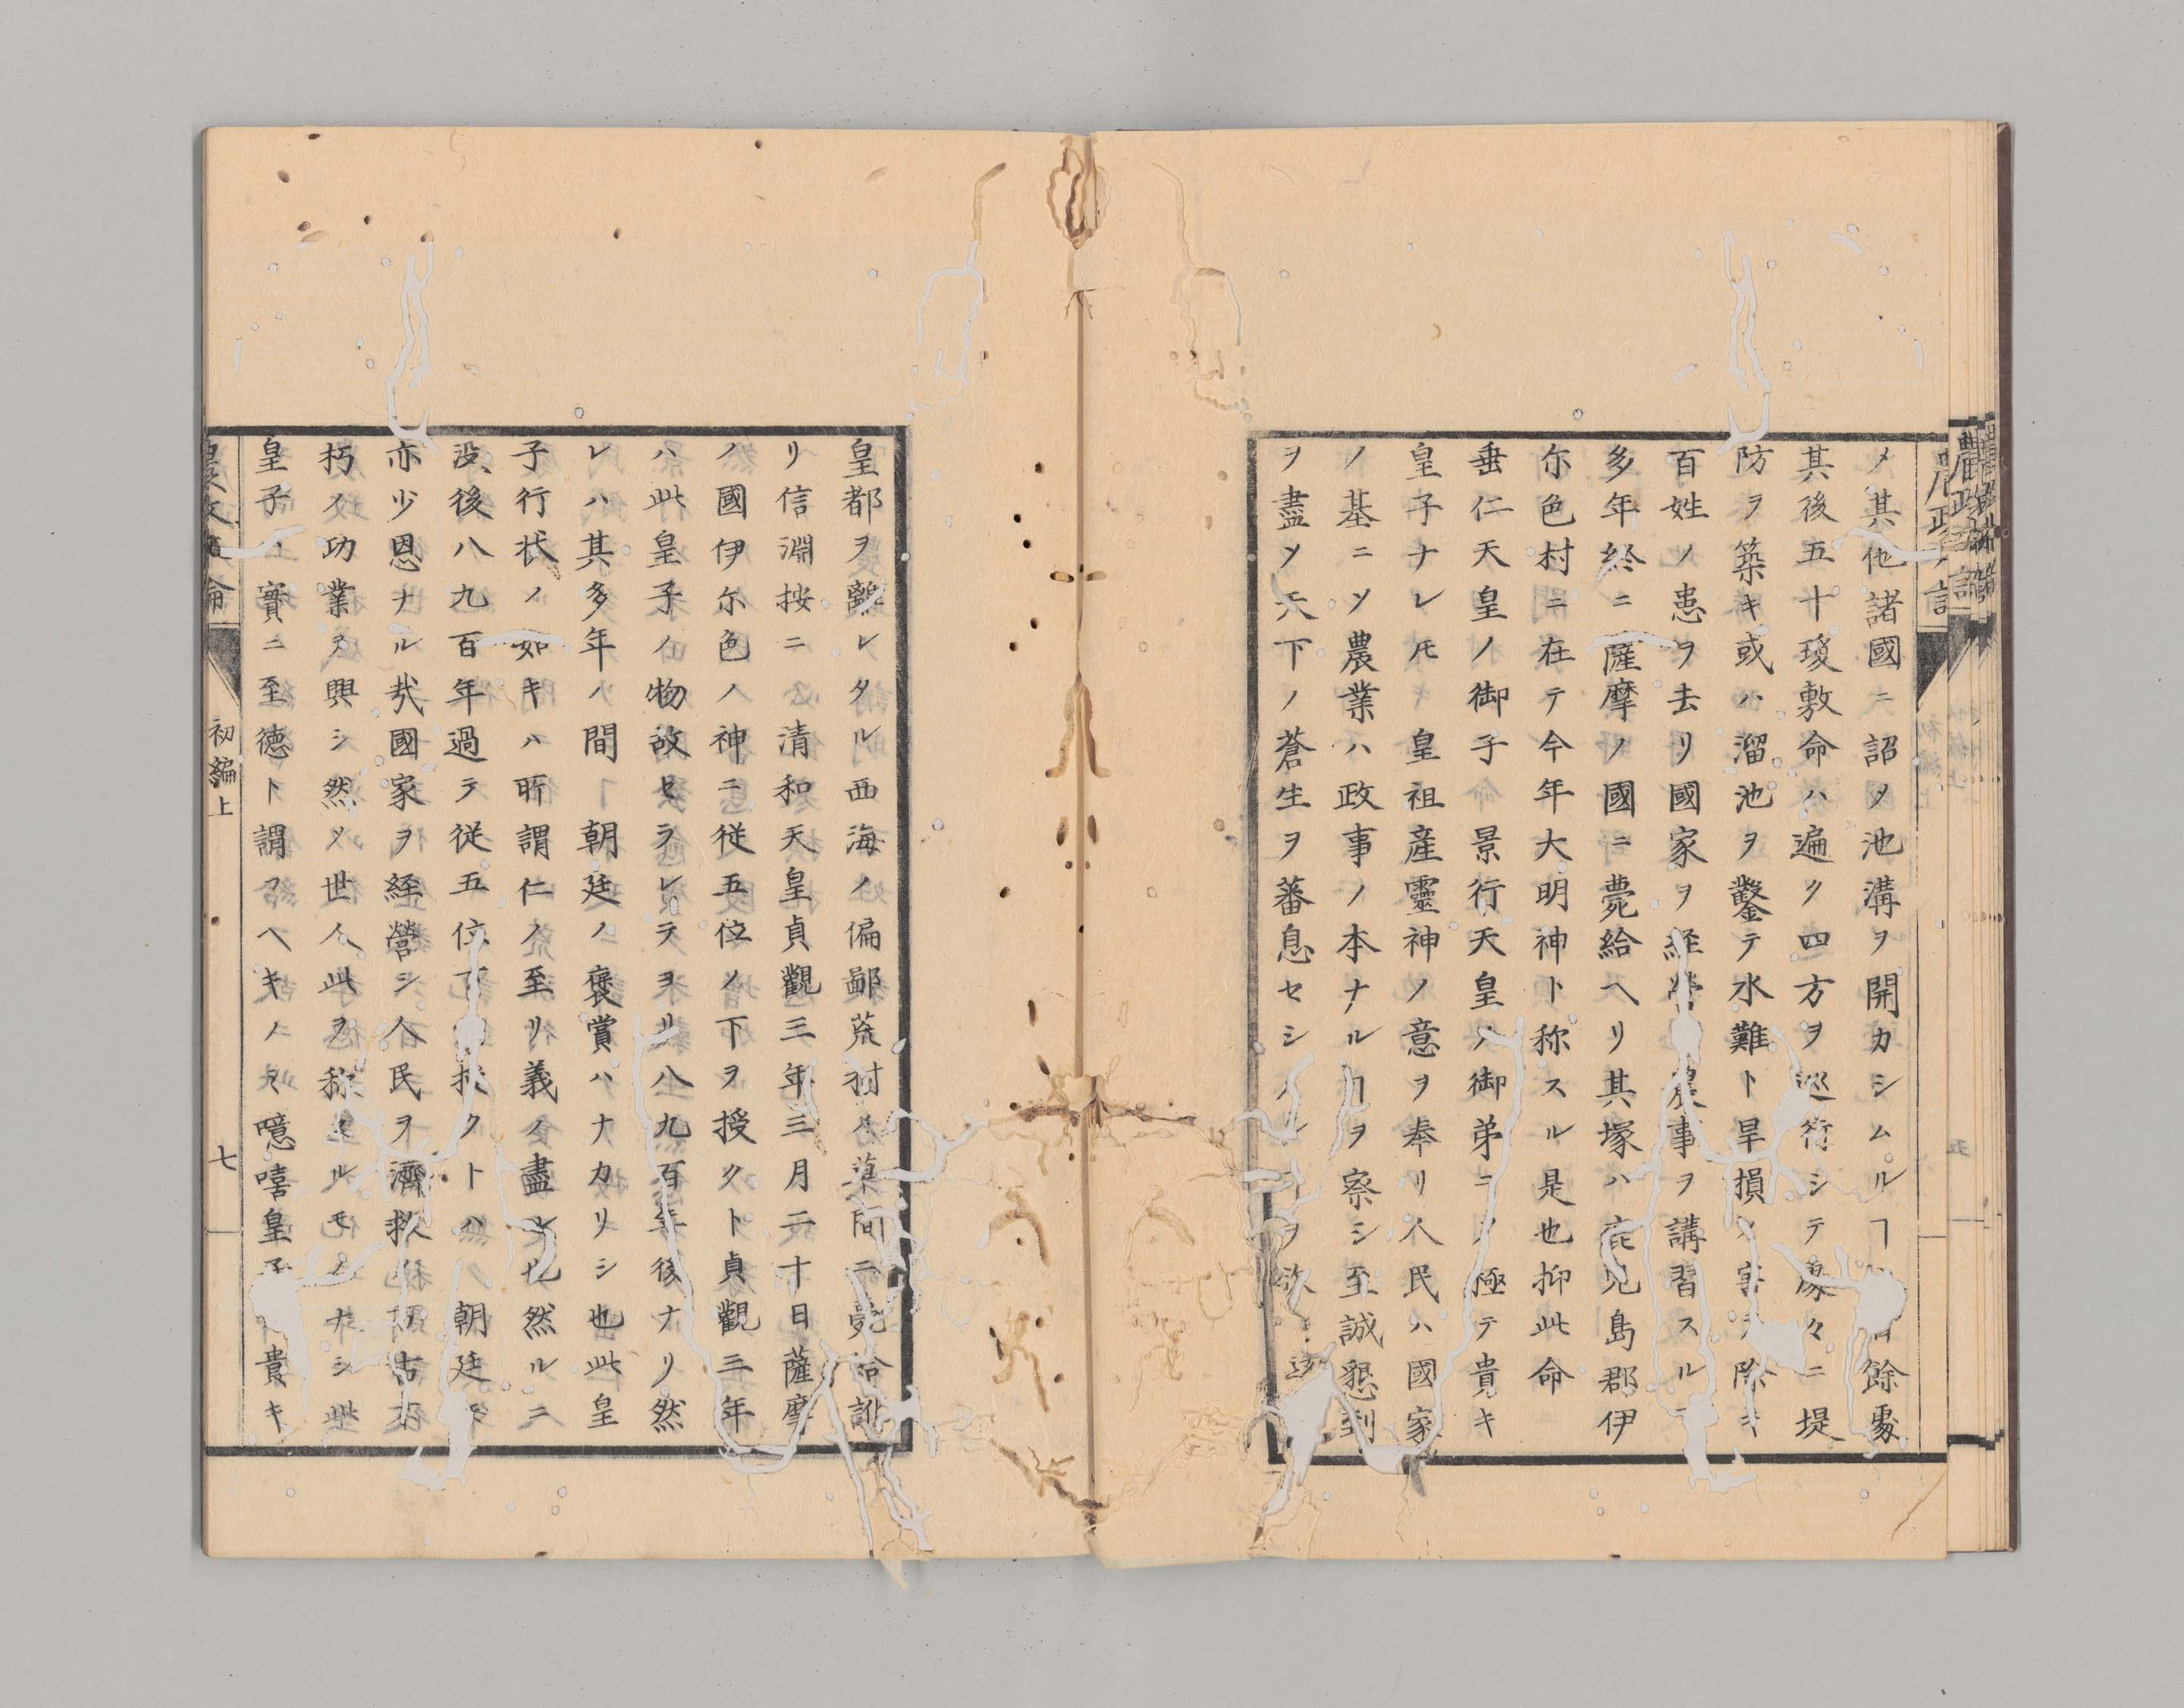 メ其他諸國ニ詔メ池溝ヲ開カシムルヿ餘處
其後五十瓊敷命ハ遍ク四方ヲ巡行シテ處々ニ堤
防ヲ築キ或ハ溜池ヲ鑿テ水難ト旱損ノ害ヲ除キ
百姓ノ患ヲ去リ國家ヲ経營農事ヲ講習スル
多年終ニ薩摩ノ國ニ薨給ヘリ其塚ハ鹿児島郡伊
尓色村ニ在テ今年大明神ト称スル是也抑此命
垂仁天皇ノ御子景行天皇ノ御弟ニメ極テ貴キ
皇子ナレ𪜈皇祖産靈神ノ意ヲ奉リ人民ハ國家
ノ基ニメ農業ハ政事ノ本ナルヿヲ察シ至誠懇到
ヲ盡メ天下ノ蒼生ヲ蕃息セシ
皇都ヲ離レタル西海ノ偏鄙荒村ノ草間ニ薨給訛
リ信淵按ニ清和天皇貞觀三年三月二十日薩摩
ノ國伊尓色ノ神ニ従五位ノ下ヲ授クト貞觀三年
ハ此皇子ノ物故セラレテヨリ八九百年後ナリ然
レハ其多年ノ間朝廷ノ褒賞ハナカリシ也此皇
子行状ノ如キハ所謂仁ノ至リ義ノ盡ル也然ルニ
没後八九百年過テ従五位下授クトハ朝廷
亦少恩ナル哉國家ヲ経營シ人民ヲ濟救
朽ノ功業ヲ興シ然メ世人此ヲ称スルモノナシ此
皇子實ニ至徳ト謂フヘキノミ噫嘻皇子貴キ
初編上
七